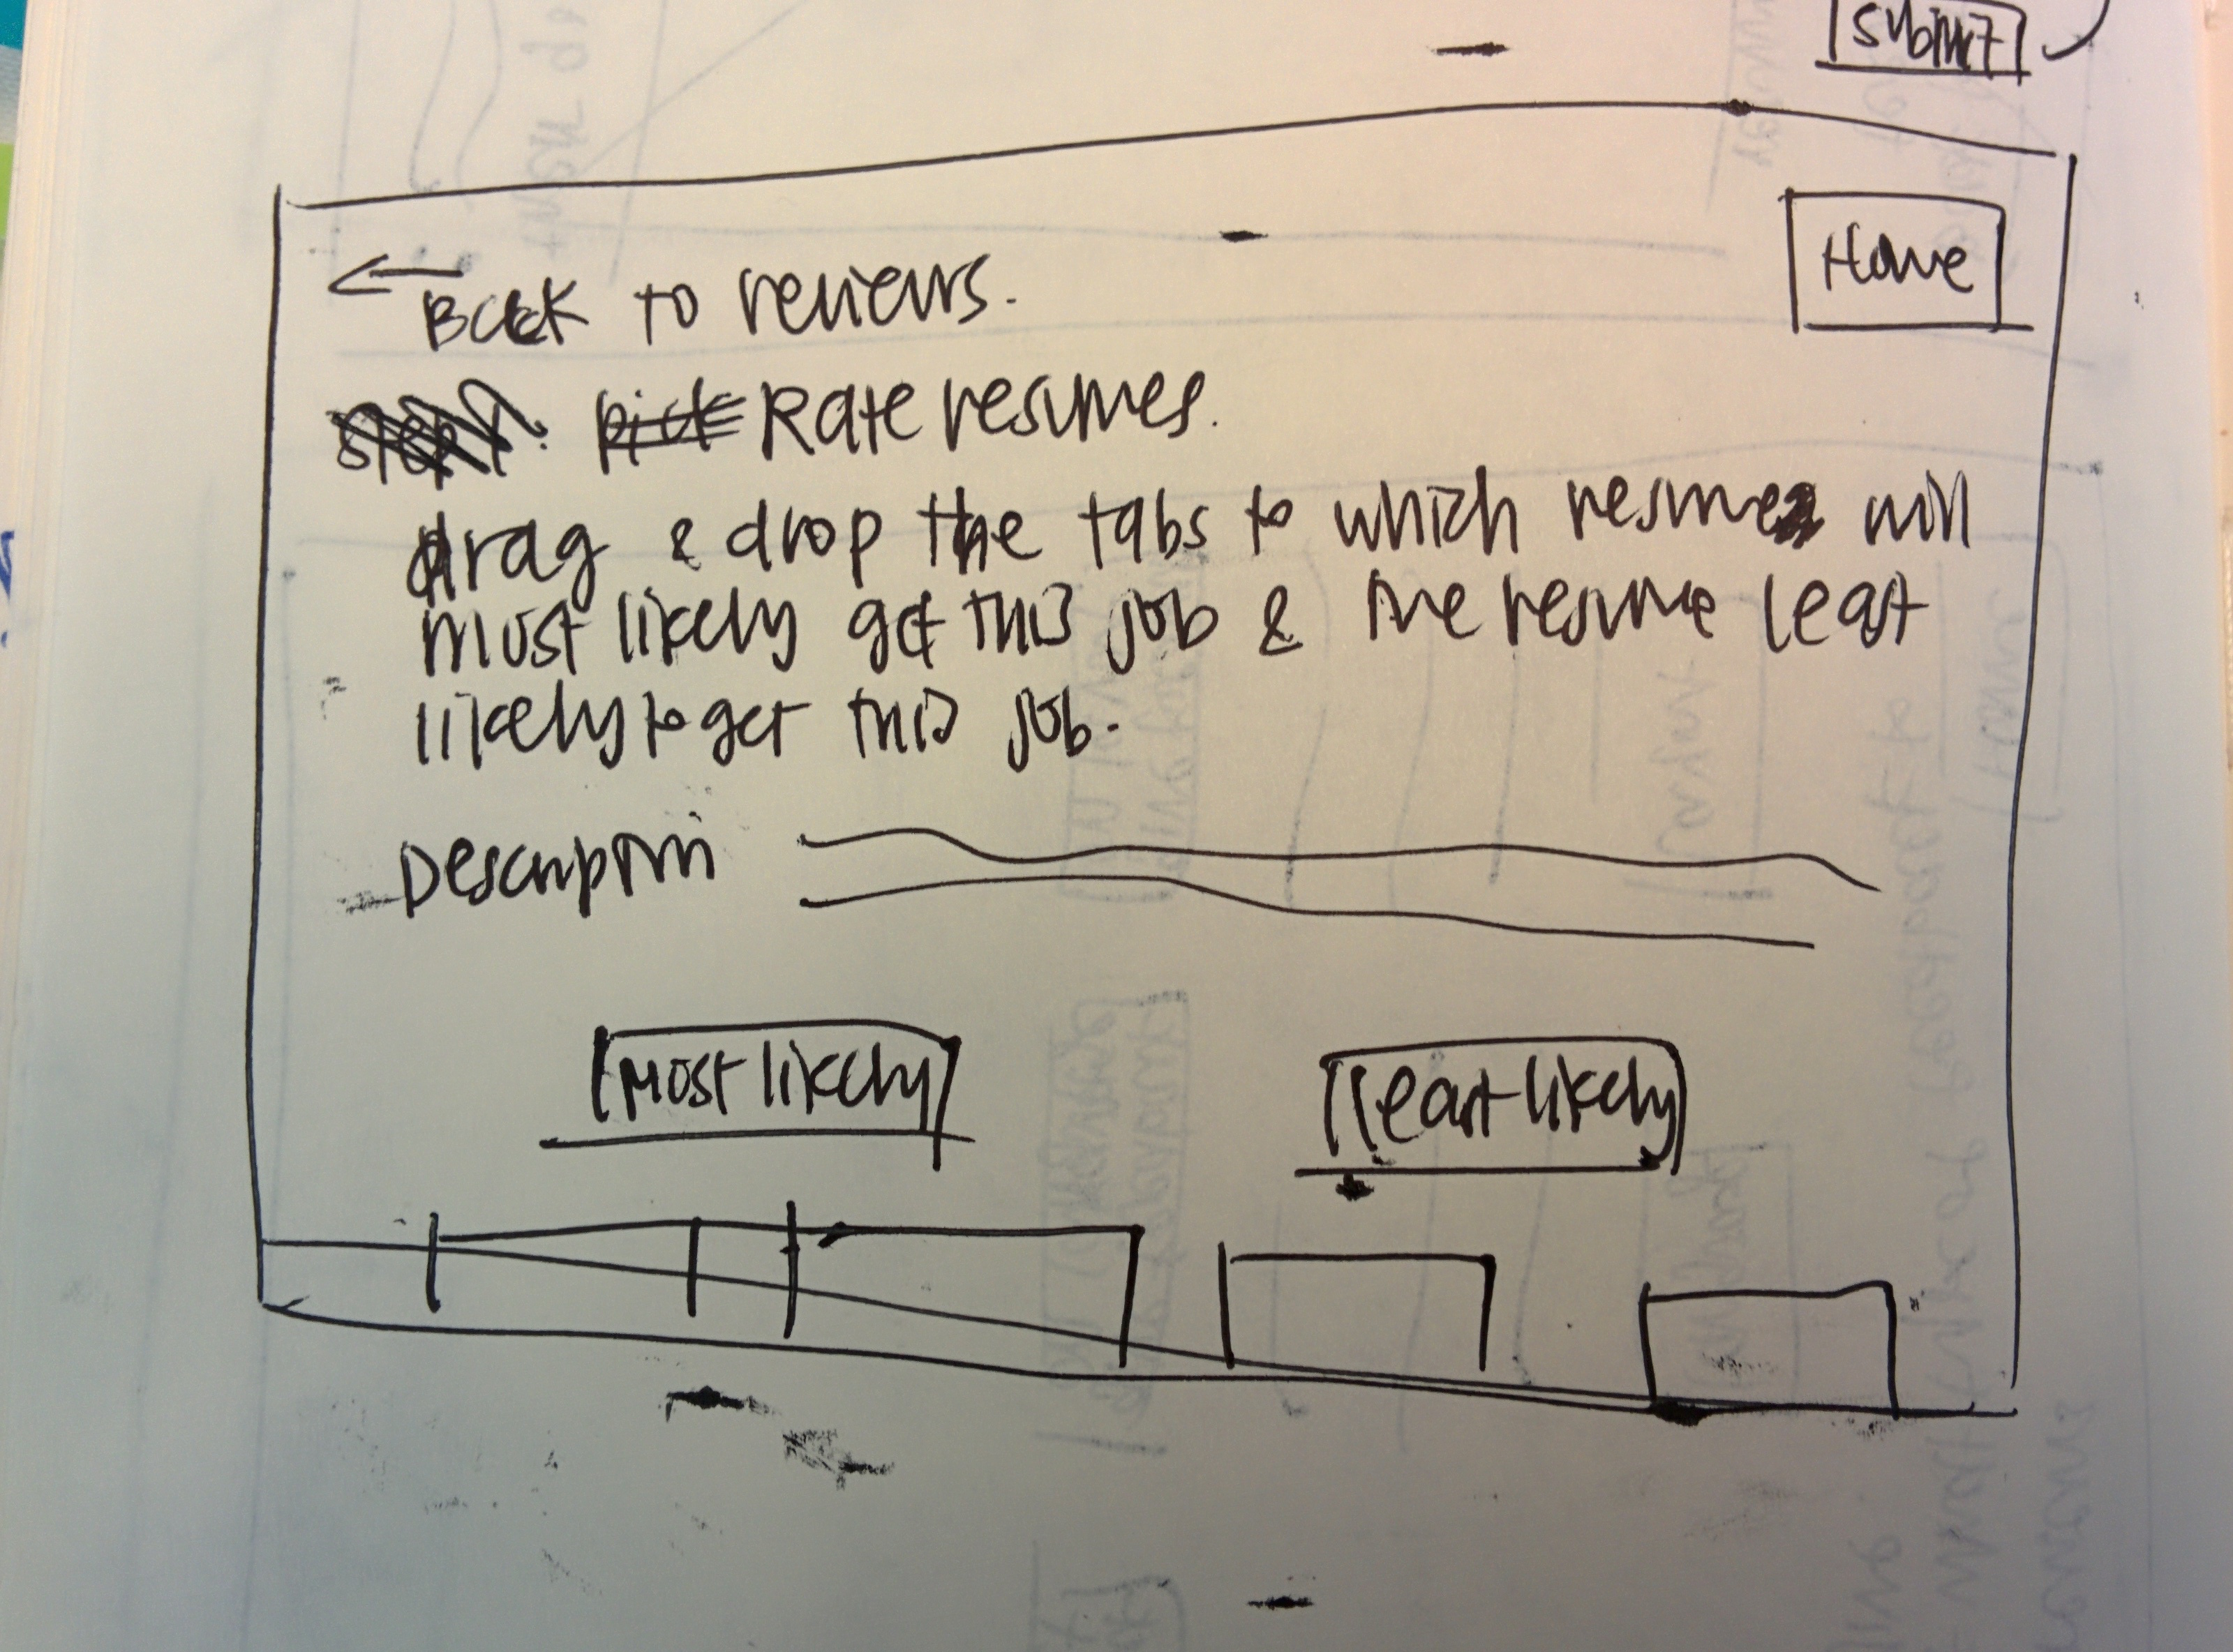 submit
Home
← Back to reviews.
Rate resumes.
drag & drop the tabs to which resume will
most likely get this job & the resume least
likely to get this job.
Description
Most likely
least likely